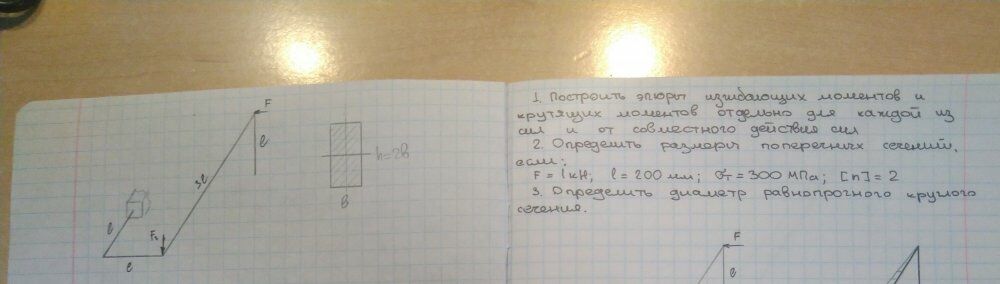 F
l
3l
h=2b
B
l
F₂
l
1. Построить эпюры изгибающих моментов и
крутящих моментов отдельно для каждой из
сил и от совместного действия сил
2. Определить размеры поперечных сечений,
если:
F = 1кН; l = 200 мм; σт = 300 МПа; [n] = 2
3. Определить диаметр равнопрочного круглого
сечения.
F
l